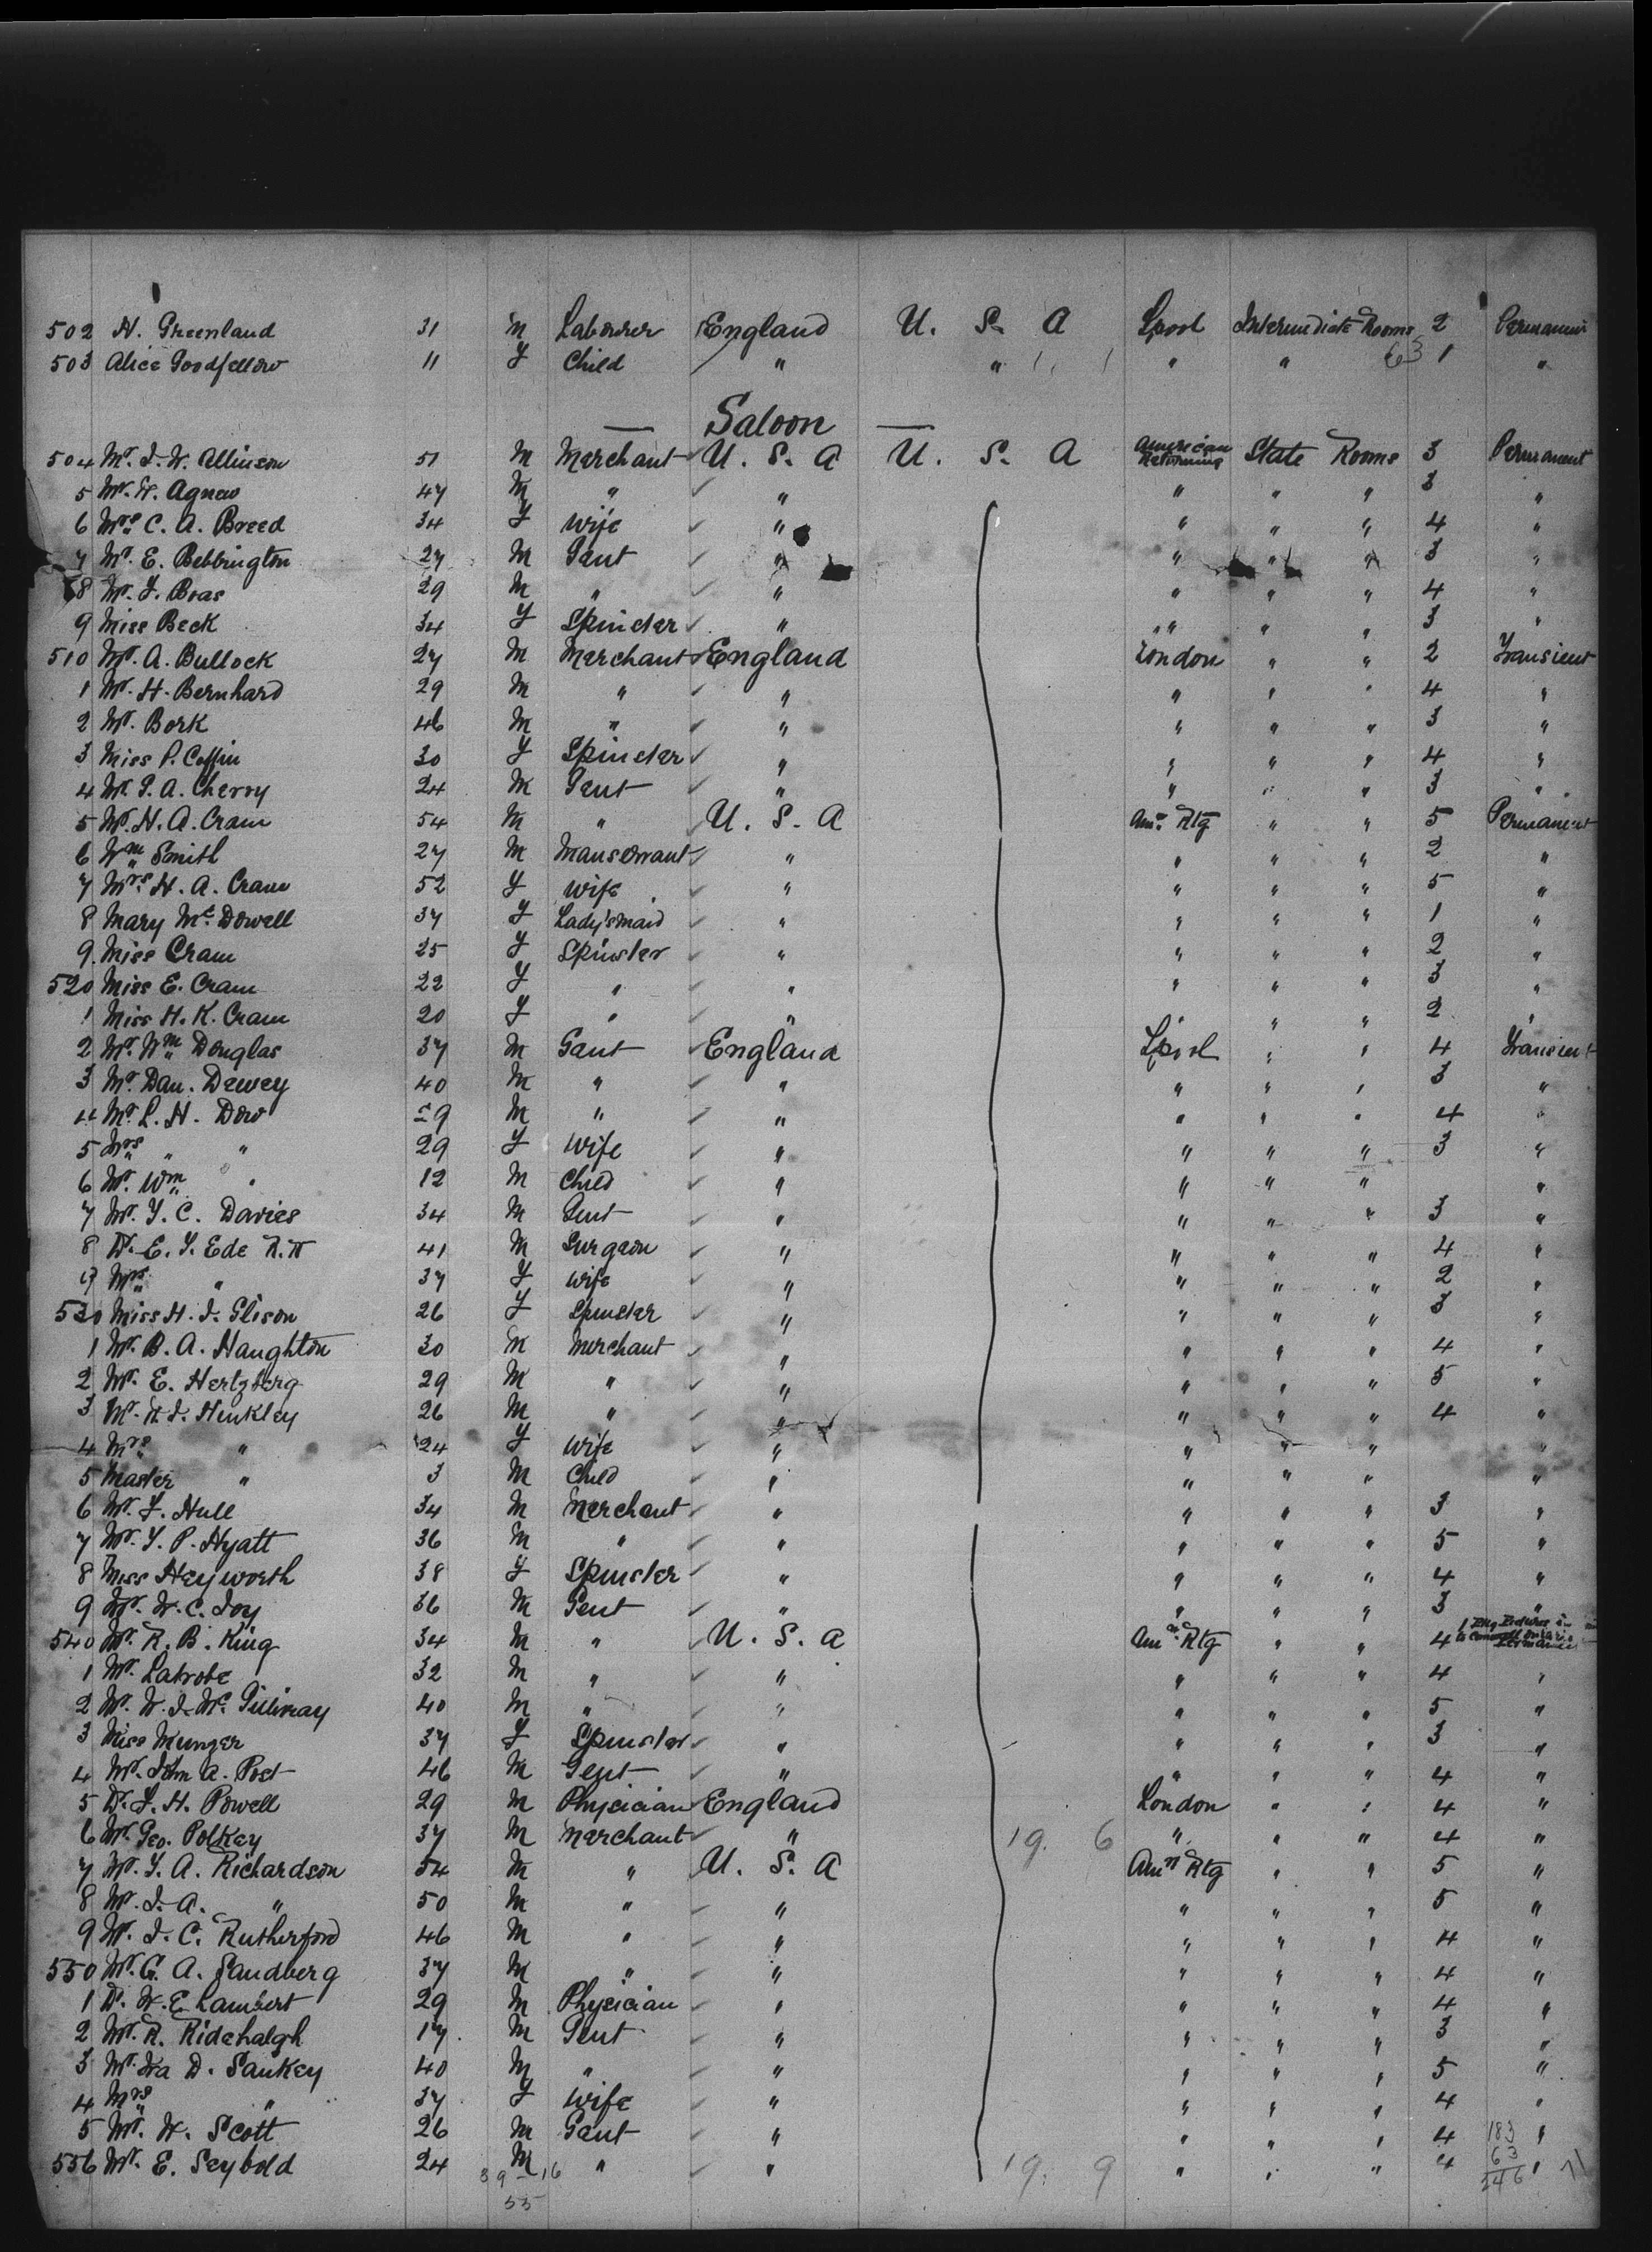 502 H. Greenland 31 M Labourer England U. S. A Lpool Intermediate Rooms 2 Permanent
503 Alice Goodfellow 11 F Child " " " " 63 1 "
— Saloon —
504 Mr. J. W. Allinson 51 M Merchant U. S. A U. S. A American Returning State Rooms 3 Permanent
5 Mr. W. Agnew 47 M " " " " " 3 "
6 Mrs C. A. Breed 34 F Wife " " " " 4 "
7 Mr. E. Bebbington 27 M Gent " " " " 3 "
8 Mr. F. Bras 29 M " " " " " 4 "
9 Miss Beck 34 F Spinster " " " " 3 "
510 Mr. A. Bullock 27 M Merchant England London " " 2 Transient
1 Mr. H. Bernhard 29 M " " " " " 4 "
2 Mr. Bork 46 M " " " " " 3 "
3 Miss P. Coffin 30 F Spinster " " " " 4 "
4 Mr. G. A. Cherry 24 M Gent " " " " 3 "
5 Mr. H. A. Cram 54 M " U. S. A Amn. Rtg " " 5 Permanent
6 Wm Smith 27 M Manservant " " " " 2 "
7 Mrs. H. A. Cram 52 F Wife " " " " 5 "
8 Mary McDowell 37 F Lady's maid " " " " 1 "
9. Miss Cram 25 F Spinster " " " " 2 "
520 Miss E. Cram 22 F " " " " " 3 "
1 Miss H. K. Cram 20 F " " " " " 2 "
2 Mr. Wm Douglas 37 M Gent England Lpool " " 4 Transient
3 Mr. Dan. Dewey 40 M " " " " " 3 "
4 Mr. L. H. Dow 29 M " " " " " 4 "
5 Mrs " " 29 F Wife " " " " 3 "
6 Mr. Wm " 12 M Child " " " " "
7 Mr. F. C. Davies 34 M Gent " " " " 3 "
8 Dr. E. F. Ede 41 M Surgeon " " " " 4 "
9 Mrs " 37 F Wife " " " " 2 "
530 Miss H. J. Glison 26 F Spinster " " " " 3 "
1 Mr. B. A. Haughton 30 M Merchant " " " " 4 "
2 Mr. E. Hertzberg 29 M " " " " " 5 "
3 Mr. H. J. Hinkley 26 M " " " " " 4 "
4 Mrs " 24 F Wife " " " " "
5 Master " 3 M Child " " " " "
6 Mr. F. Hull 34 M Merchant " " " " 3 "
7 Mr. F. P. Hyatt 36 M " " " " " 5 "
8 Miss Heyworth 38 F Spinster " " " " 4 "
9 Mr. W. C. Joy 36 M Gent " " " " 3 "
540 Mr. R. B. King 34 M " U. S. A Amn. Rtg " " 4
1 Mr. Latrobe 32 M " " " " " 4 "
2 Mr. W. J. Mc. Gillivray 40 M " " " " " 5 "
3 Miss Munger 37 F Spinster " " " " 3 "
4 Mr. John A. Post 46 M Gent " " " " 4 "
5 Dr. F. H. Powell 29 M Physician England London " " 4 "
6 Mr. Geo. Polkey 37 M Merchant " 19. 6 " " " 4 "
7 Mr. F. A. Richardson 54 M " U. S. A Amn Rtg " " 5 "
8 Mr. J. A. " 50 M " " " " " 5 "
9 Mr. J. C. Rutherford 46 M " " " " " 4 "
550 Mr. G. A. Sandberg 37 M " " " " " 4 "
1 Dr. W. E. Lambert 29 M Physician " " " " 4 "
2 Mr. R. Ridehalgh 17 M Gent " " " " 3 "
3 Mr. Ira D. Sankey 40 M " " " " " 5 "
4 Mrs " 37 F Wife " " " " 4 "
5 Mr. W. Scott 26 M Gent " " " " 4 183 "
556 Mr. E. Seybold 24 M " " 19. 9 " " " 4 63 "
39 - 16 246
55